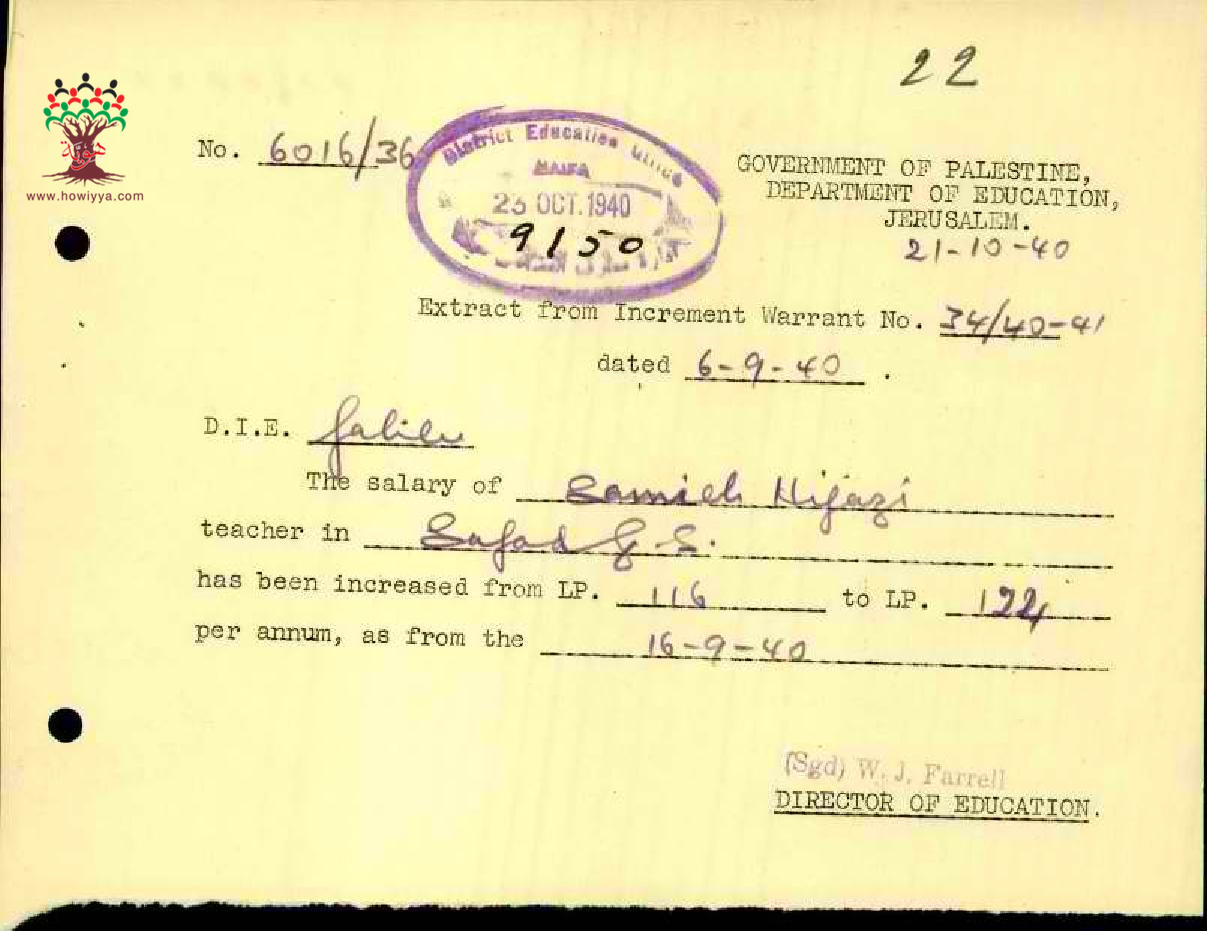 22
www.howiyya.com
No. 6016/36
District Education Office
HAIFA
23 OCT. 1940
9150
GOVERNMENT OF PALESTINE,
DEPARTMENT OF EDUCATION,
JERUSALEM.
21-10-40
Extract from Increment Warrant No. 34/40-41
dated 6-9-40 .
D.I.E. Galilee
The salary of Samieh Hijazi
teacher in Safad G.S.
has been increased from LP. 116 to LP. 122
per annum, as from the 16-9-40
(Sgd) W. J. Farrell
DIRECTOR OF EDUCATION.